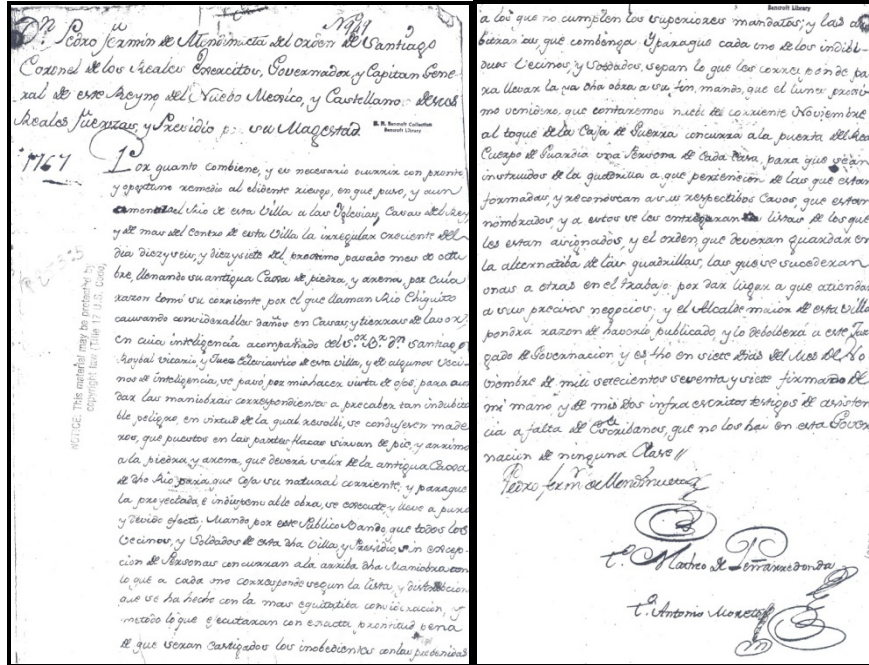 Nº 9
Dn. Pedro fermin de Mendinueta del orden de Santiago
Coronel de los Reales Exercitos, Governador, y Capitan Gene-
ral de este Reyno del Nuebo Mexico, y Castellano de sus
Reales fuerzas, y Presidio pr. su Magestad
H. H. Bancroft Collection
Bancroft Library
1767
Por quanto combiene, y es necesario ocurrir con pronto
y oportuno remedio al ebidente riesgo, en que puso, y aun
amenaza el Rio de esta Villa a las Yglesias, Casas del Rey
y de mas del Centro de esta Villa la irregular creciente del
dia diezyseis, y diezysiete del proximo pasado mes de octu-
bre, llenando su antigua Caxa de piedra, y arena, por cuia
razon tomó su corriente por el que llaman Rio Chiquito
causando considerables daños en Casas, y tierras de lavor,
en cuia inteligencia acompañado del Sor. Br. dn. Santiago
Roybal vicario y Juez Eclesiastico de esta Villa, y de algunos veci-
nos de inteligencia, se pasó por mi a hacer vista de ojos, para acor-
dar las maniobras correspondientes a precaber tan indubita-
ble peligro, en virtud de la qual resolbi, se condusesen made-
ros, que puestos en las partes flacas sirvan de pie, y arrimo
a la piedra y arena, que deverá salir de la antigua Caxa
de dho Rio para que coja su natural corriente, y para que
la proyectada, e indispensable obra, se execute, y lleve a puro
y devido efecto, Mando, por este Publico Bando, que todos los
Vecinos, y Soldados de esta dha Villa, y Presidio, sin excep-
cion de Personas concurran a la arriba dha Maniobra con
lo que a cada uno corresponde segun la lista, y distribucion
que se ha hecho con la mas equitatiba concideracion, y
metodo lo que executaran con exacta prontitud pena
de que seran castigados los inobedientes con las prebenidas
NOTICE: This material may be protected by
copyright law (Title 17 U.S. Code)
Bancroft Library
a los que no cumplen los superiores mandatos, y las ar-
bitrarias que combenga. Y para que cada uno de los indibi-
duos Vecinos, y Soldados, sepan lo que les corresponde pa-
ra llevar la ya dha obra a su fin, mando, que el lunes proxi-
mo venidero, que contaremos nuebe del corriente Noviembre
al toque de la Caja de Guerra concurra a la puerta del Real
Cuerpo de Guardia una Persona de Cada Casa, para que sean
instruidos de la quadrilla a que pertenecen de las que estan
formadas, y reconoscan a sus respectibos Cavos, que estan
nombrados, y a estos se les entregaran las listas de los que
les estan asignados, y el orden, que deveran guardar en
la alternatiba de las quadrillas, las que se sucederan
unas a otras en el trabajo por dar lugar a que atiendan
a sus precisos negocios; y el Alcalde maior de esta Villa
pondrá razon de haverlo publicado, y lo debolberá a este Juz-
gado de Governacion, y es fho en siete dias del Mes de No-
viembre de mill setecientos sesenta y siete firmado de
mi mano, y de mis dos infra escritos testigos de asisten-
cia a falta de Escribanos, que no los hai en esta Gover-
nacion de ninguna Clase //
Pedro fermn. de Mendinueta
to. Matheo de Peñarredonda
to. Antonio Moreto